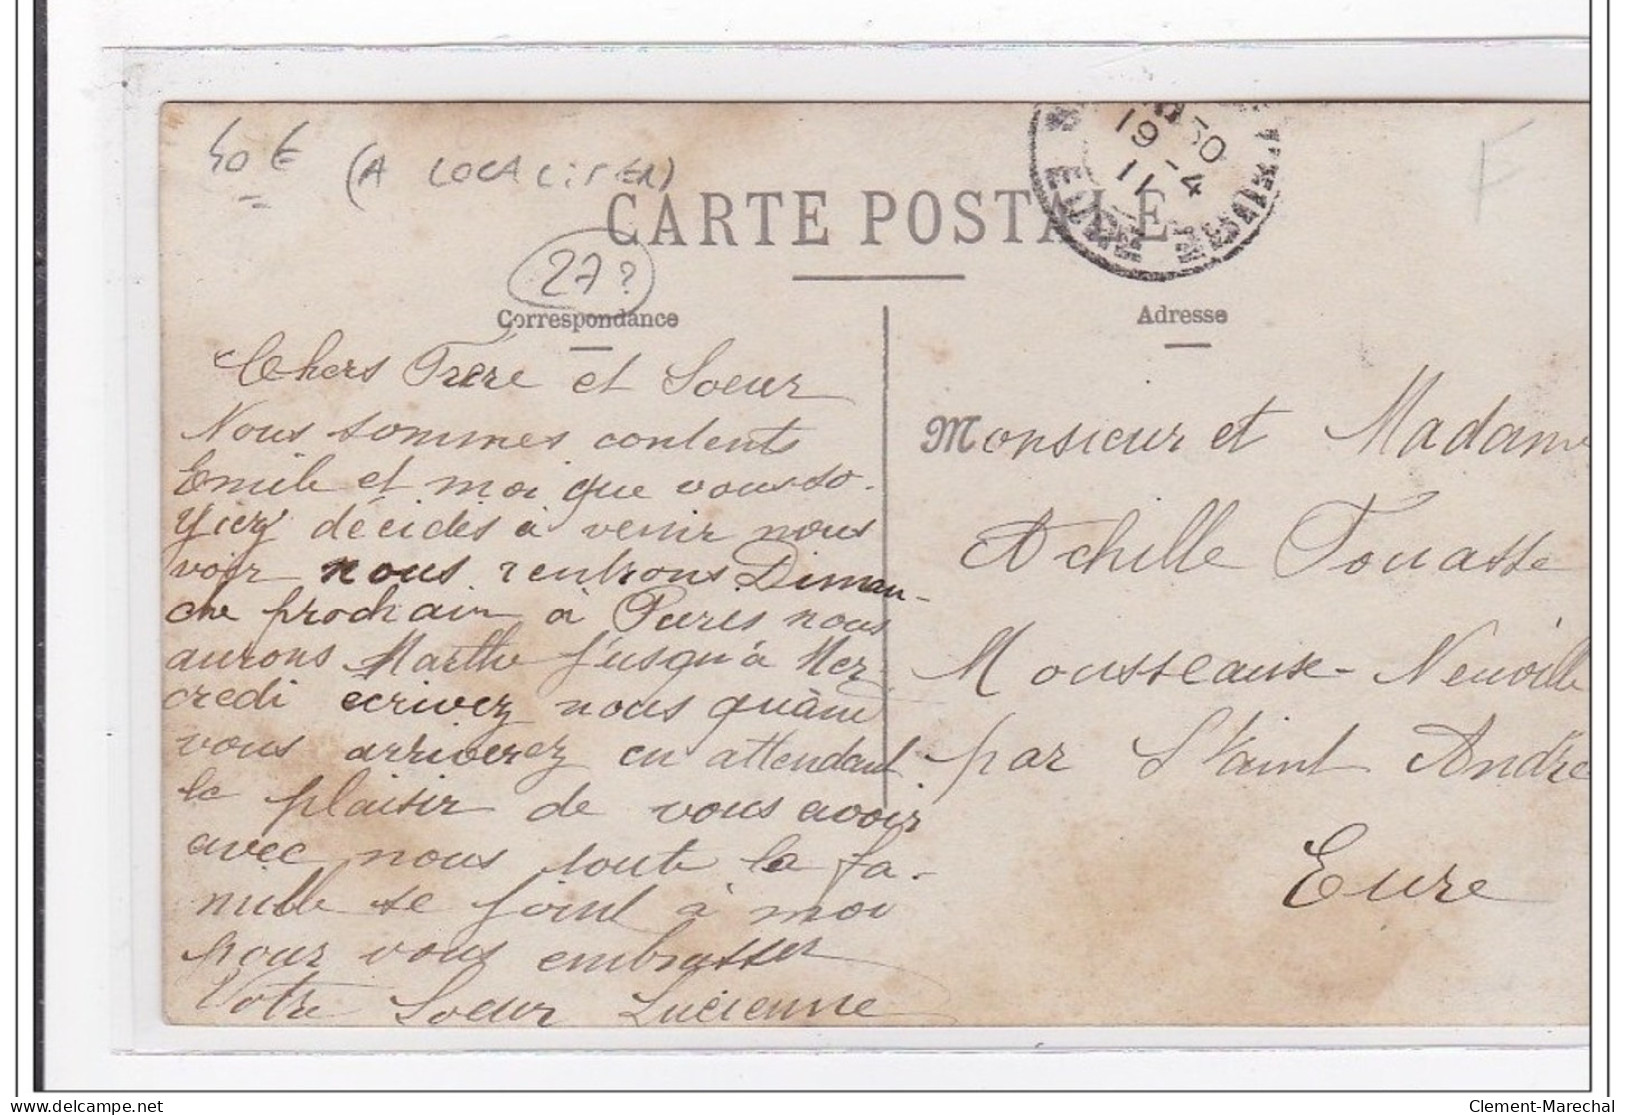 40 € (A LOCALISER)
F
CARTE POSTALE
27?
19 30
11 - 4
EURE
Correspondance
Adresse
Chers Frere et Soeur
Nous sommes contents
Emile et moi que vous so-
yiez décidés à venir nous
voir nous rentrons Diman-
che prochain à Paris nous
aurons Marthe jusqu'à Mer
credi ecrivez nous quand
vous arriverez en attendant
le plaisir de vous avoir
avec nous toute la fa-
mille se joint à moi
pour vous embrasser
Votre Soeur Lucienne
Monsieur et Madame
Achille Touasse
Mousseaux-Neuville
par Saint André
Eure
Clement-Marechal